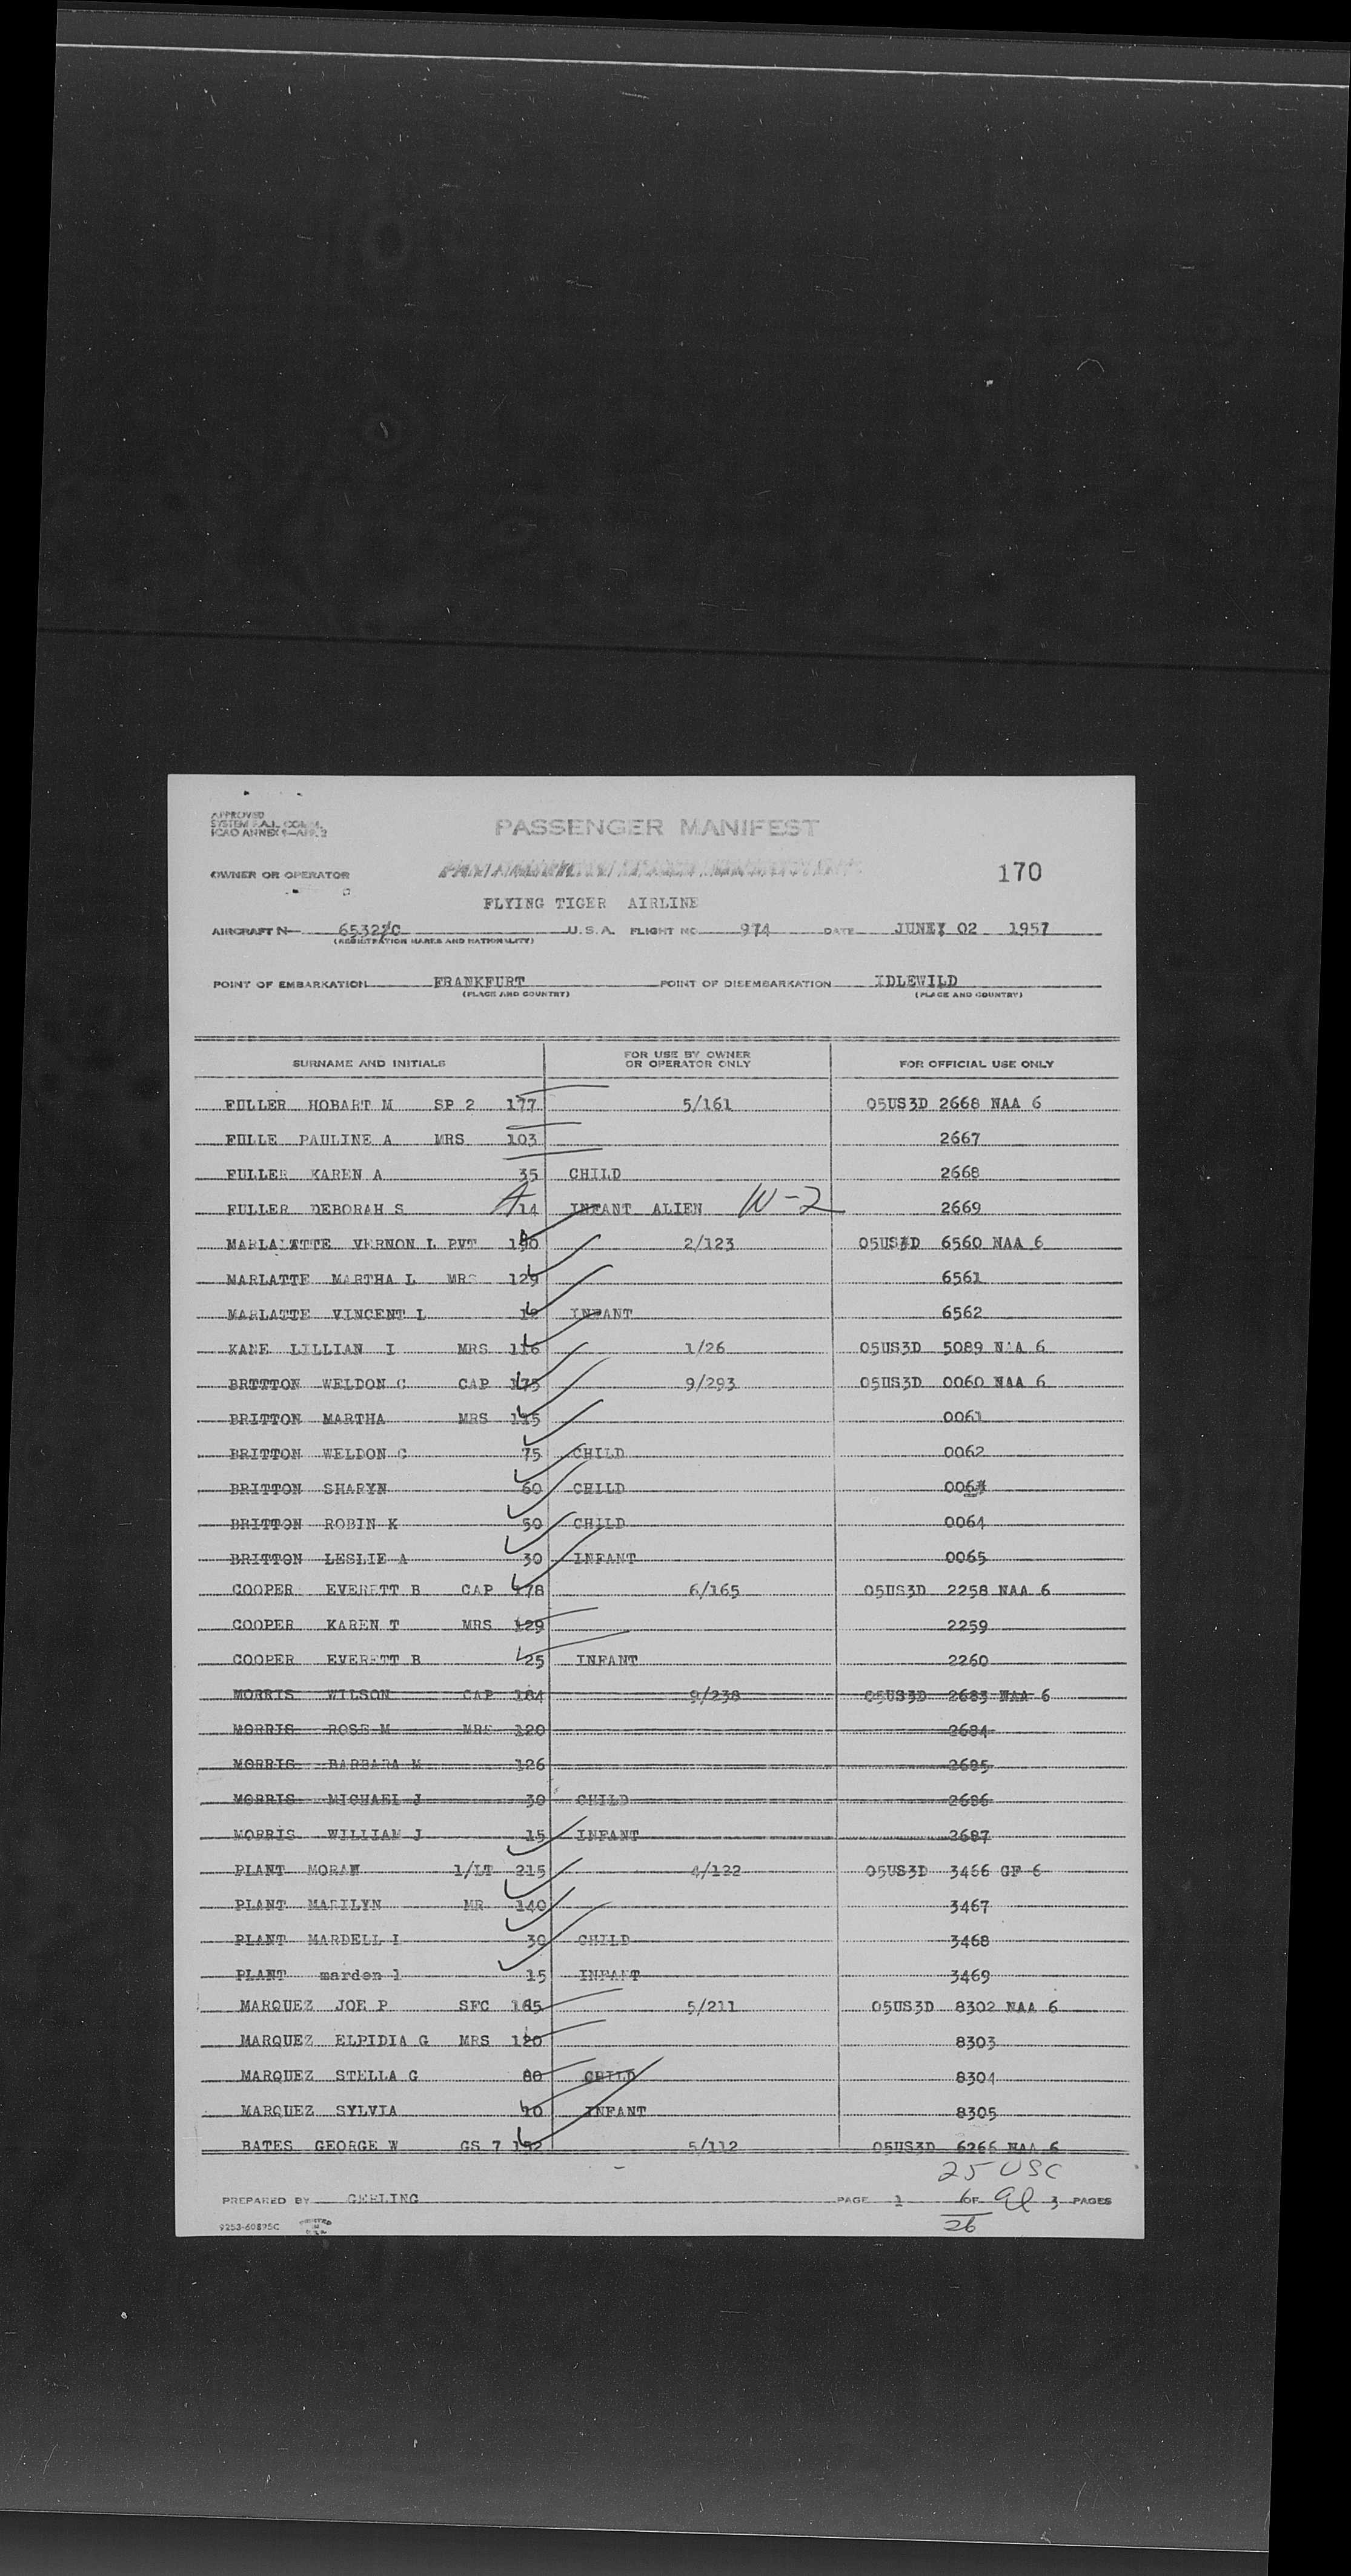 APPROVED
SYSTEM F.A.L. COMM.
ICAO ANNEX 9—APP. 2
PASSENGER MANIFEST
OWNER OR OPERATOR
170
FLYING TIGER AIRLINE
AIRCRAFT N 6532 C U.S.A. FLIGHT NO. 974 DATE JUNE 02 1957
(REGISTRATION MARKS AND NATIONALITY)
POINT OF EMBARKATION FRANKFURT POINT OF DISEMBARKATION IDLEWILD
(PLACE AND COUNTRY) (PLACE AND COUNTRY)
SURNAME AND INITIALS FOR USE BY OWNER OR OPERATOR ONLY FOR OFFICIAL USE ONLY
FULLER HOBART M SP 2 177 5/161 05US3D 2668 NAA 6
FULLE PAULINE A MRS 103 2667
FULLER KAREN A 35 CHILD 2668
FULLER DEBORAH S A 14 INFANT ALIEN W-2 2669
MARLALATTE VERNON L PVT 190 2/123 05US3D 6560 NAA 6
MARLATTE MARTHA L MRS 129 6561
MARLATTE VINCENT L INFANT 6562
KANE LILLIAN I MRS 116 1/26 05US3D 5089 NAA 6
BRITTON WELDON C CAP 175 9/293 05US3D 0060 NAA 6
BRITTON MARTHA MRS 115 0061
BRITTON WELDON C 75 CHILD 0062
BRITTON SHARYN 60 CHILD 0063
BRITTON ROBIN K 50 CHILD 0064
BRITTON LESLIE A 30 INFANT 0065
COOPER EVERETT B CAP 178 6/165 05US3D 2258 NAA 6
COOPER KAREN T MRS 129 2259
COOPER EVERETT B 25 INFANT 2260
MORRIS WILSON CAP 184 9/238 05US3D 2683 NAA 6
MORRIS ROSE M MRS 120 2684
MORRIS BARBARA M 126 2685
MORRIS MICHAEL J 30 CHILD 2686
MORRIS WILLIAM J 15 INFANT 2687
PLANT MORAN 1/LT 215 4/122 05US3D 3466 GF 6
PLANT MARILYN MR 140 3467
PLANT MARDELL L 30 CHILD 3468
PLANT marden l 15 INFANT 3469
MARQUEZ JOE P SFC 165 5/211 05US3D 8302 NAA 6
MARQUEZ ELPIDIA G MRS 120 8303
MARQUEZ STELLA G 80 CHILD 8304
MARQUEZ SYLVIA 10 INFANT 8305
BATES GEORGE W GS 7 152 5/112 05US3D 6266 NAA 6
25 USC
PREPARED BY GERLING PAGE 1 OF 3 PAGES
26
9253-60895C PRINTED IN U.S.A.